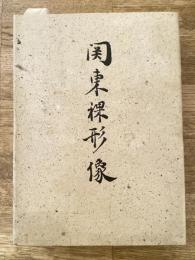 関東裸形像